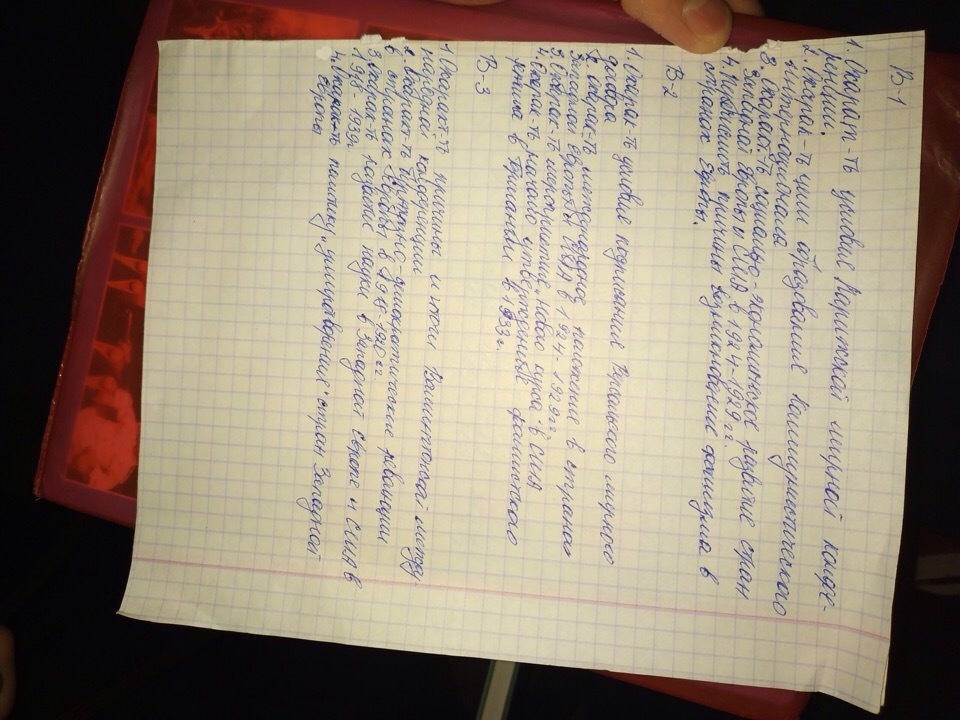 В-1
1. Охарак-ть условия Парижской мирной конфе-
ренции.
2. Охарак-ть цели образования Коммунистического
интернационала
3. Охарак-ть социально-экономическое развитие стран
Западной Европы и США в 1924-1929 гг
4. Перечислить причины возникновения фашизма в
странах Европы.
В-2
1. Охарак-ть условия подписания Версальского мирного
договора
2. Охарак-ть международное положение в странах
Западной Европы и США в 1924-1929 гг
3. Охарак-ть мероприятия „Нового курса" в США
4. Охарак-ть начало утверждения фашистского
режима в Германии в 1933 г.
В-3
1. Охаракт-ть причины и итоги Вашингтонской между-
народной конференции
2. Охаракт-ть буржуазно-демократические революции
в странах Европы в 1910-1920 гг.
3. Охарак-ть развитие науки в Западной Европе и США в
1918-1939 г
4. Охарак-ть политику „умиротворения" стран Западной
Европы